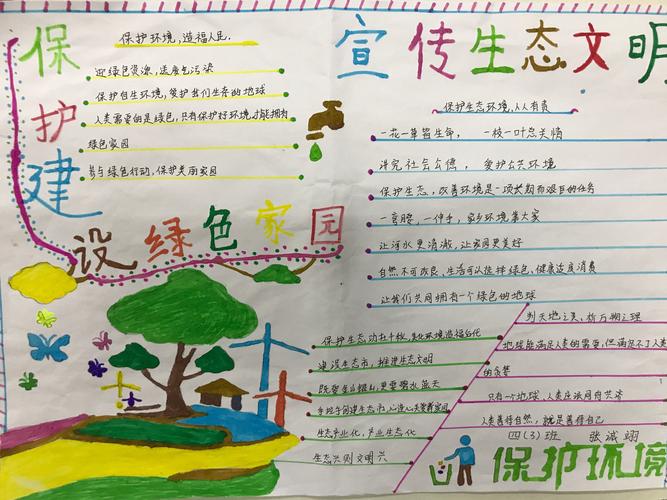 保护建设绿色家园
保护环境，造福人民.
迎绿色资源，送废气污染
保护自生环境，爱护我们生存的地球
人类需要的是绿色，只有保护好环境才能拥有
绿色家园
参与绿色行动，保护美丽家园
宣传生态文明
保护生态环境，人人有责
一花一草皆生命，一枝一叶总关情
讲究社会公德，爱护公共环境
保护生态，改善环境是一项长期而艰巨的任务
一言腔，一伸手，家乡环境靠大家
让河水更清澈，让家园更美好
自然不可改良、生活可以选择绿色，健康适度消费
让我们共同拥有一个绿色的地球
判天地之美，析万物之理
地球能满足人类的需要，但满足不了人类
的贪婪
只有一个地球，人类应该同舟共济
人类善待自然，就是善待自己
四(3)班 张诚翊
保护生态功在千秋，美化环境造福百代
建设生态市，推进生态文明
既要金山银山，更要碧水蓝天
手拉手创建生态市，心连心
生态产业化，产业生态化
生态兴则文明兴
保护环境